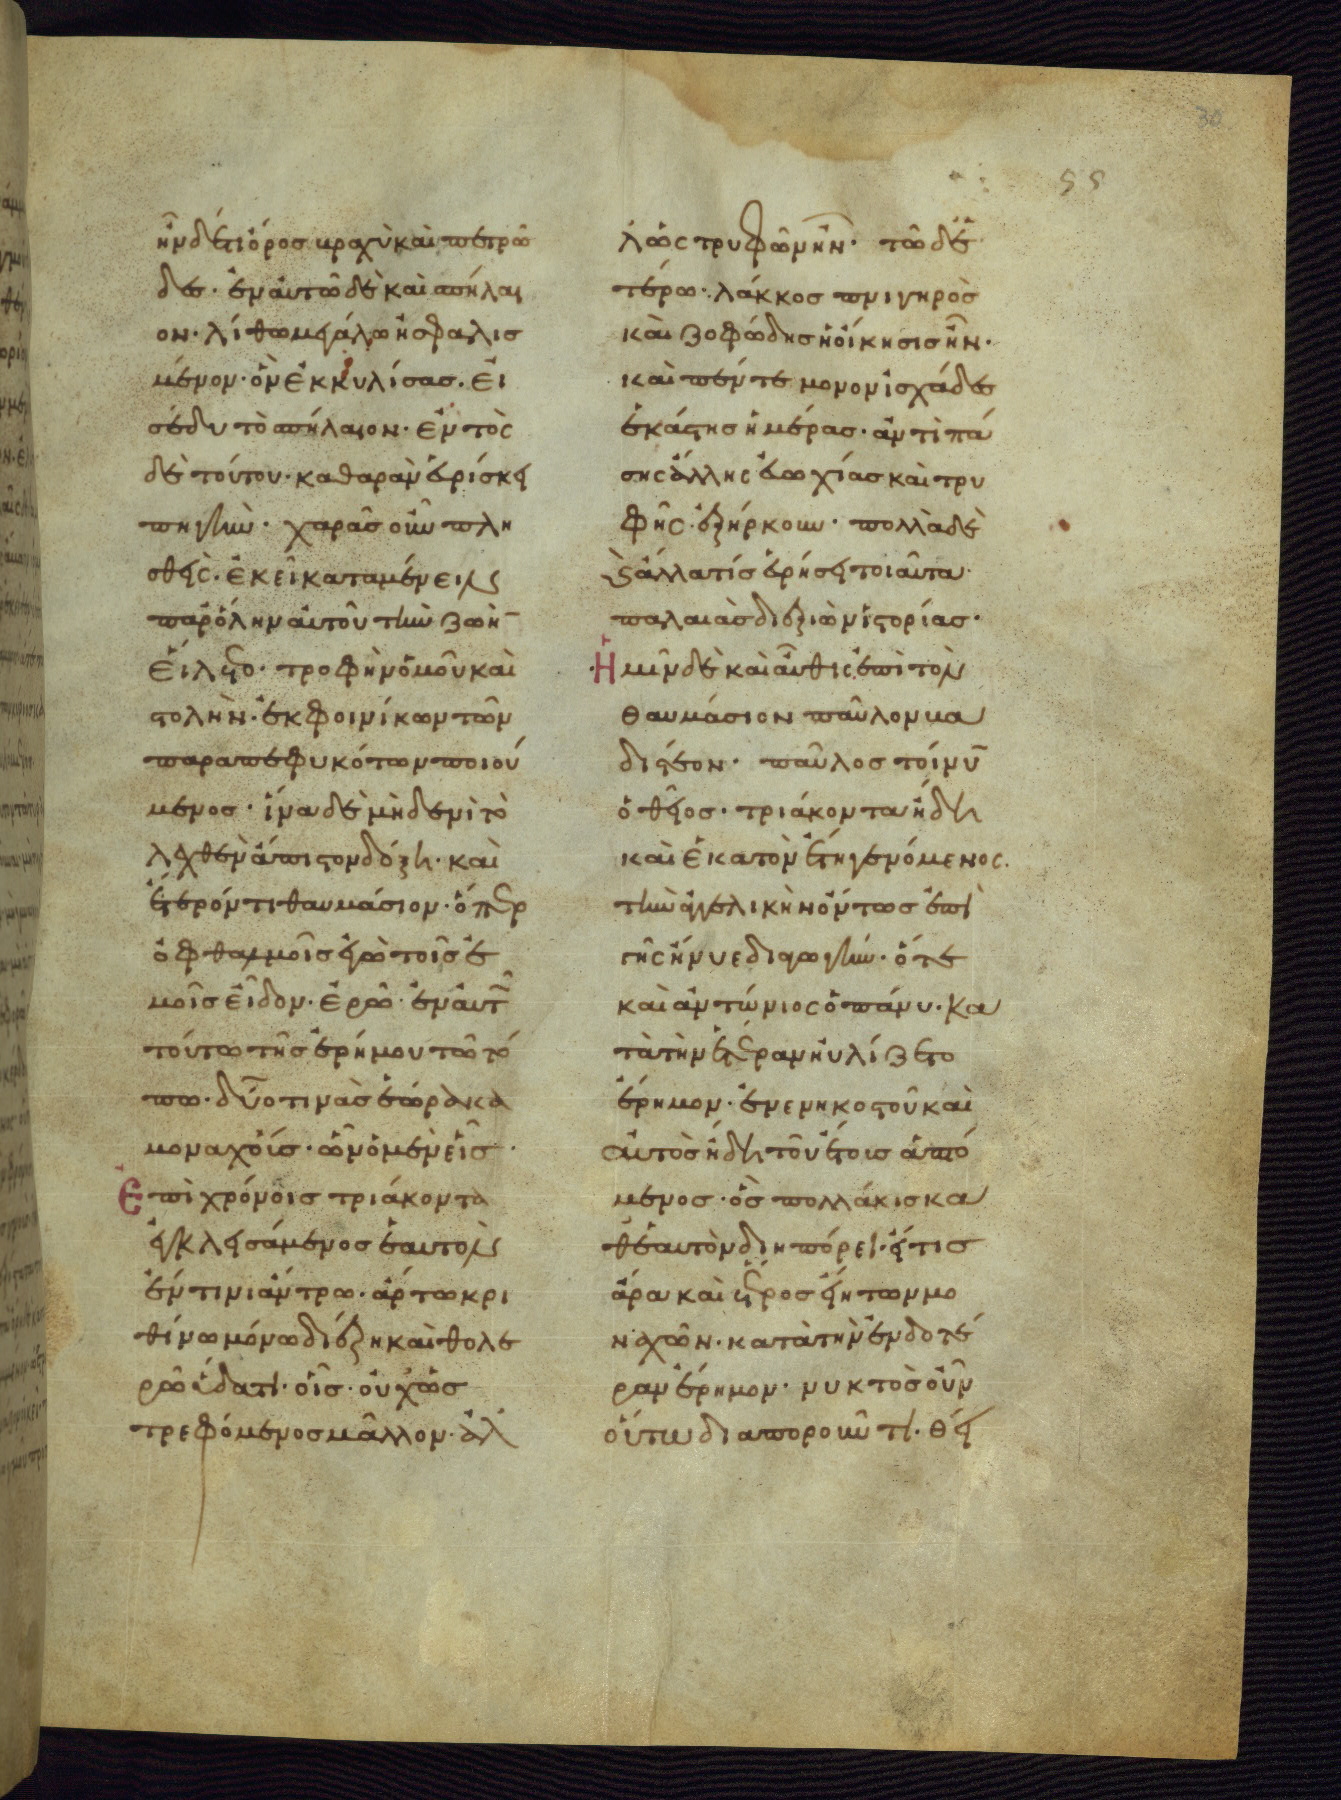 30
55
ἦν δέ τι ὄρος τραχὺ καὶ πετρῶ
δες· ἐν αὐτῶ δὲ καὶ σπήλαι
ον· λίθω μεγάλω ἠσφαλισ
μένον· ὃν ἐκκυλίσας· εἰ
σέδυ τὸ σπήλαιον· ἐντὸς
δὲ τούτου· καθαρὰν εὑρίσκει
πηγὴν· χαρᾶς οὖν πλη
σθεὶς· ἐκεῖ καταμένειν
παρ ὅλην αὐτοῦ τὴν ζωὴν
εἵλετο· τροφὴν ὁμοῦ καὶ
στολὴν· ἐκ φοινίκων τῶν
παραπεφυκότων ποιού
μενος· ἵνα δὲ μηδενὶ τὸ
λεχθὲν ἄπιστον δόξη· καὶ
ἕτερόν τι θαυμάσιον· ὅπερ
ὀφθαλμοῖς ἐγὼ τοῖς ἐ
μοῖς εἶδον· ἐρῶ· ἐν αὐτῶ
τούτω τῆς ἐρήμου τῶ τό
πω· δύο τινὰς ἑώρακα
μοναχούς· ὧν ὁ μὲν εἷς
Ἐπὶ χρόνοις τριάκοντα
ἐγκλεισάμενος ἑαυτὸν
ἔν τινι ἄντρω· ἄρτω κρι
θίνω μόνω διέζη καὶ θολε
ρῶ ὕδατι· οἷς· οὐχ ὡς
τρεφόμενος μᾶλλον· ἀλ
λ ὡς τρυφῶν ἦν· τῶ δὲ
τέρω· λάκκος πνιγηρὸς
καὶ ζοφώδης ἡ οἴκησις ἦν·
καὶ πέντε μόνον ἰσχάδες
ἑκάστης ἡμέρας· ἀντὶ πά
σης ἄλλης εὐωχίας καὶ τρυ
φῆς· ἐξήρκουν· πολλὰ δὲ
καὶ ἄλλα τίς εὑρήσει τοιαῦτα·
παλαιὰς διεξιὼν ἱστορίας·
Ἡμῖν δὲ καὶ αὖθις ἐπὶ τὸν
θαυμάσιον παῦλον μα
διτέον· παῦλος τοίνυν
ὁ θεῖος· τριάκοντα ἤδη
καὶ ἑκατὸν ἔτη γενόμενος·
τὴν ἀγγελικὴν ὄντως ἐπὶ
γῆς ἤνυε διαγωγήν· ὅτε
καὶ ἀντώνιος ὁ πάνυ· κα
τὰ τὴν ἑτέραν ηὐλίζετο
ἔρημον· ἐνενηκοστοῦ καὶ
αὐτὸς ἤδη τοῦ ἔτους ἁπτό
μενος· ὃς πολλάκις κα
θ ἑαυτὸν διηπόρει· εἴ τις
ἄρα καὶ ἕτερος εἴη τῶν μο
ναχῶν· κατὰ τὴν ἐνδοτέ
ραν ἔρημον· νυκτὸς οὖν
οὕτω διαποροῦντι· θεί